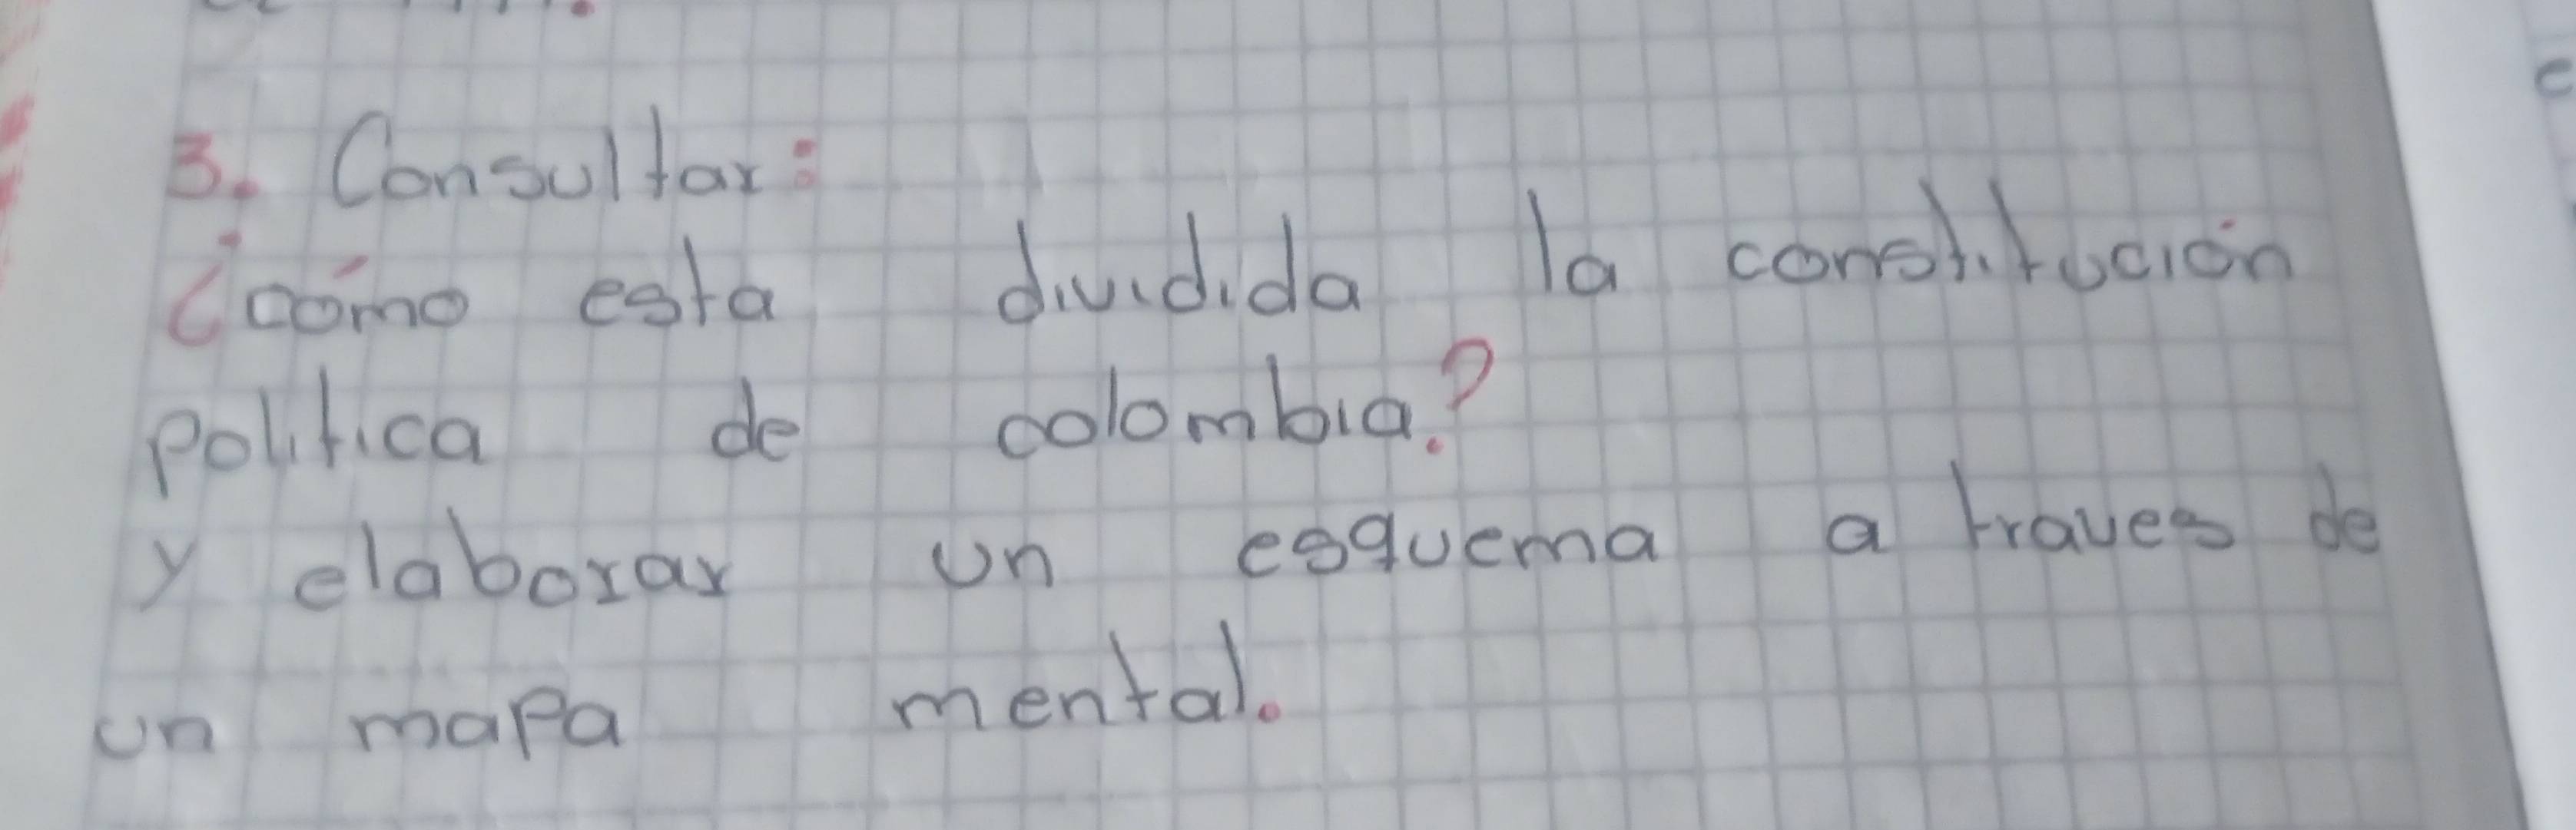 3. Consultar:
¿cómo esta dividida la constitución
politica de colombia?
y elaborar un esquema a traves de
un mapa mental.